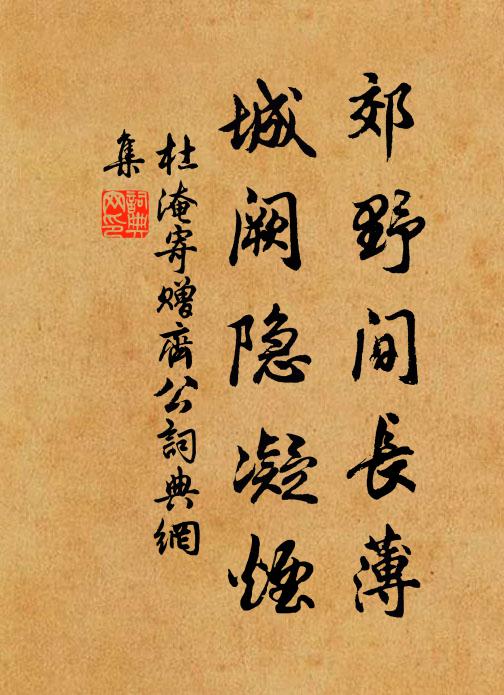 郊野间長薄
城阙隐凝煙
杜淹寄赠齊公詞典網
集
詞典网印